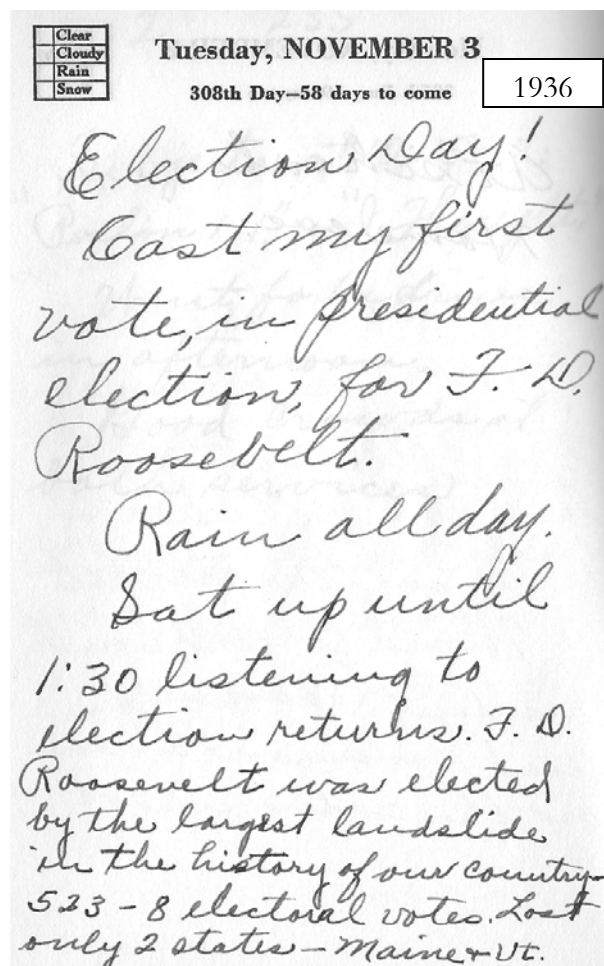 Clear
Cloudy
Rain
Snow
Tuesday, NOVEMBER 3
308th Day—58 days to come
1936
Election Day!
Cast my first
vote, in presidential
election, for F. D.
Roosevelt.
Rain all day.
Sat up until
1:30 listening to
election returns. F. D.
Roosevelt was elected
by the largest landslide
in the history of our country—
523 – 8 electoral votes. Lost
only 2 states – Maine + Vt.